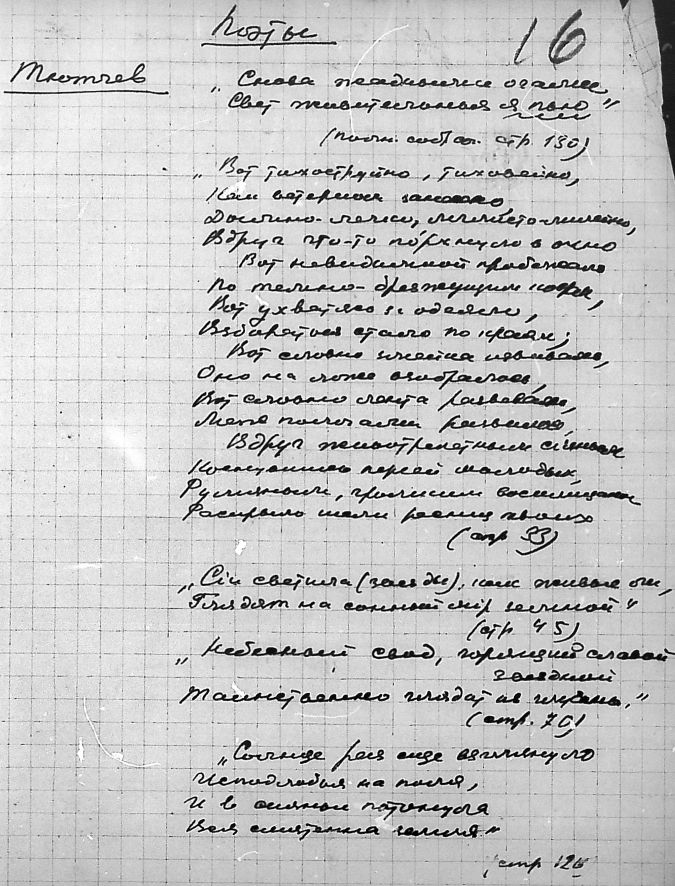 Поэты
16
Тютчев
„Снова жадными очами
Свет живительный я пью"
(полн. собр. соч. стр. 130)
„Вот тихоструйно, тиховейно,
Как ветерком занесено,
Дымно-легко, мглисто-лилейно,
Вдруг что-то порхнуло в окно
Вот невидимкой пробежало
По темно-брезжущим коврам,
Вот ухватясь за одеяло,
Взбираться стало по краям;
Вот словно змейка извиваясь,
Оно на ложе взобралось,
Вот словно лента развеваясь,
Меж пологами развилось,
Вдруг животрепетным сияньем
Коснувшись персей молодых,
Румяным, громким восклицаньем
Раскрыло шелк ресниц твоих
(стр 33)
„Сии светила (звезды), как живые очи,
Глядят на сонный мір земной"
(стр 45)
„Небесный свод, горящий славой
звездной
Таинственно глядит из глубины."
(стр. 70)
„Солнце раз еще взглянуло
Исподлобья на поля,
И в сияньи потонула
Вся смятенная земля"
(стр 126